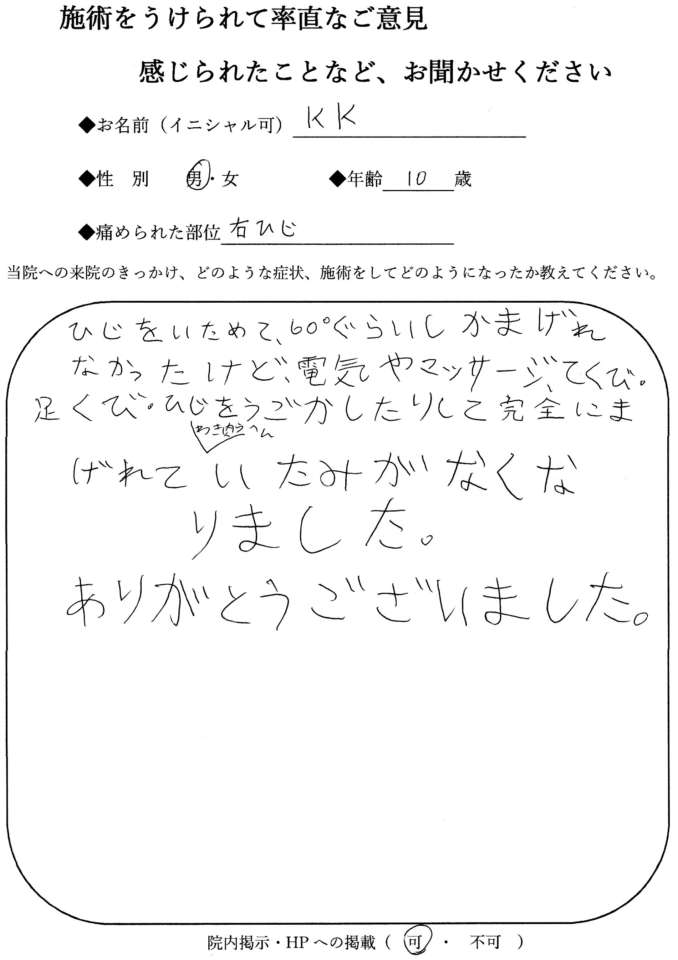 施術をうけられて率直なご意見
感じられたことなど、お聞かせください
◆お名前（イニシャル可） KK
◆性 別 男・女 ◆年齢 10 歳
◆痛められた部位 右ひじ
当院への来院のきっかけ、どのような症状、施術をしてどのようになったか教えてください。
ひじをいためて、60°ぐらいしかまげれ
なかったけど、電気やマッサージ、てくび・
足くび・ひじをうごかしたりして完全にま
げれていたみがなくな
りました。
ありがとうございました。
院内掲示・HPへの掲載（ 可 ・ 不可 ）